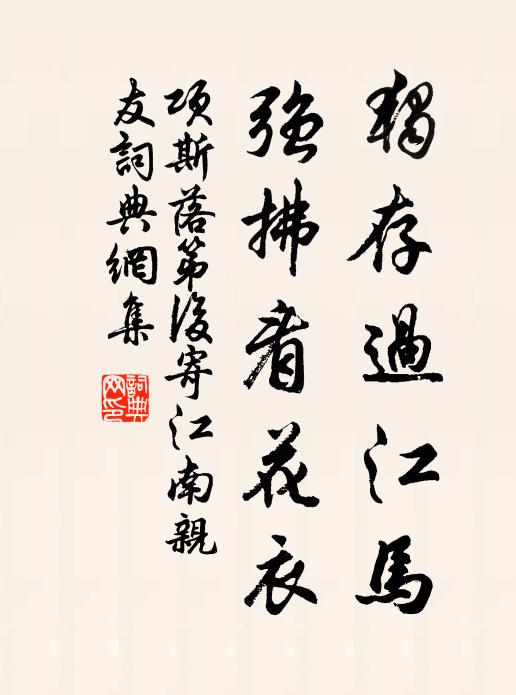 獨存過江馬
強拂看花衣
項斯落第後寄江南親
友詞典網集
詞典網印